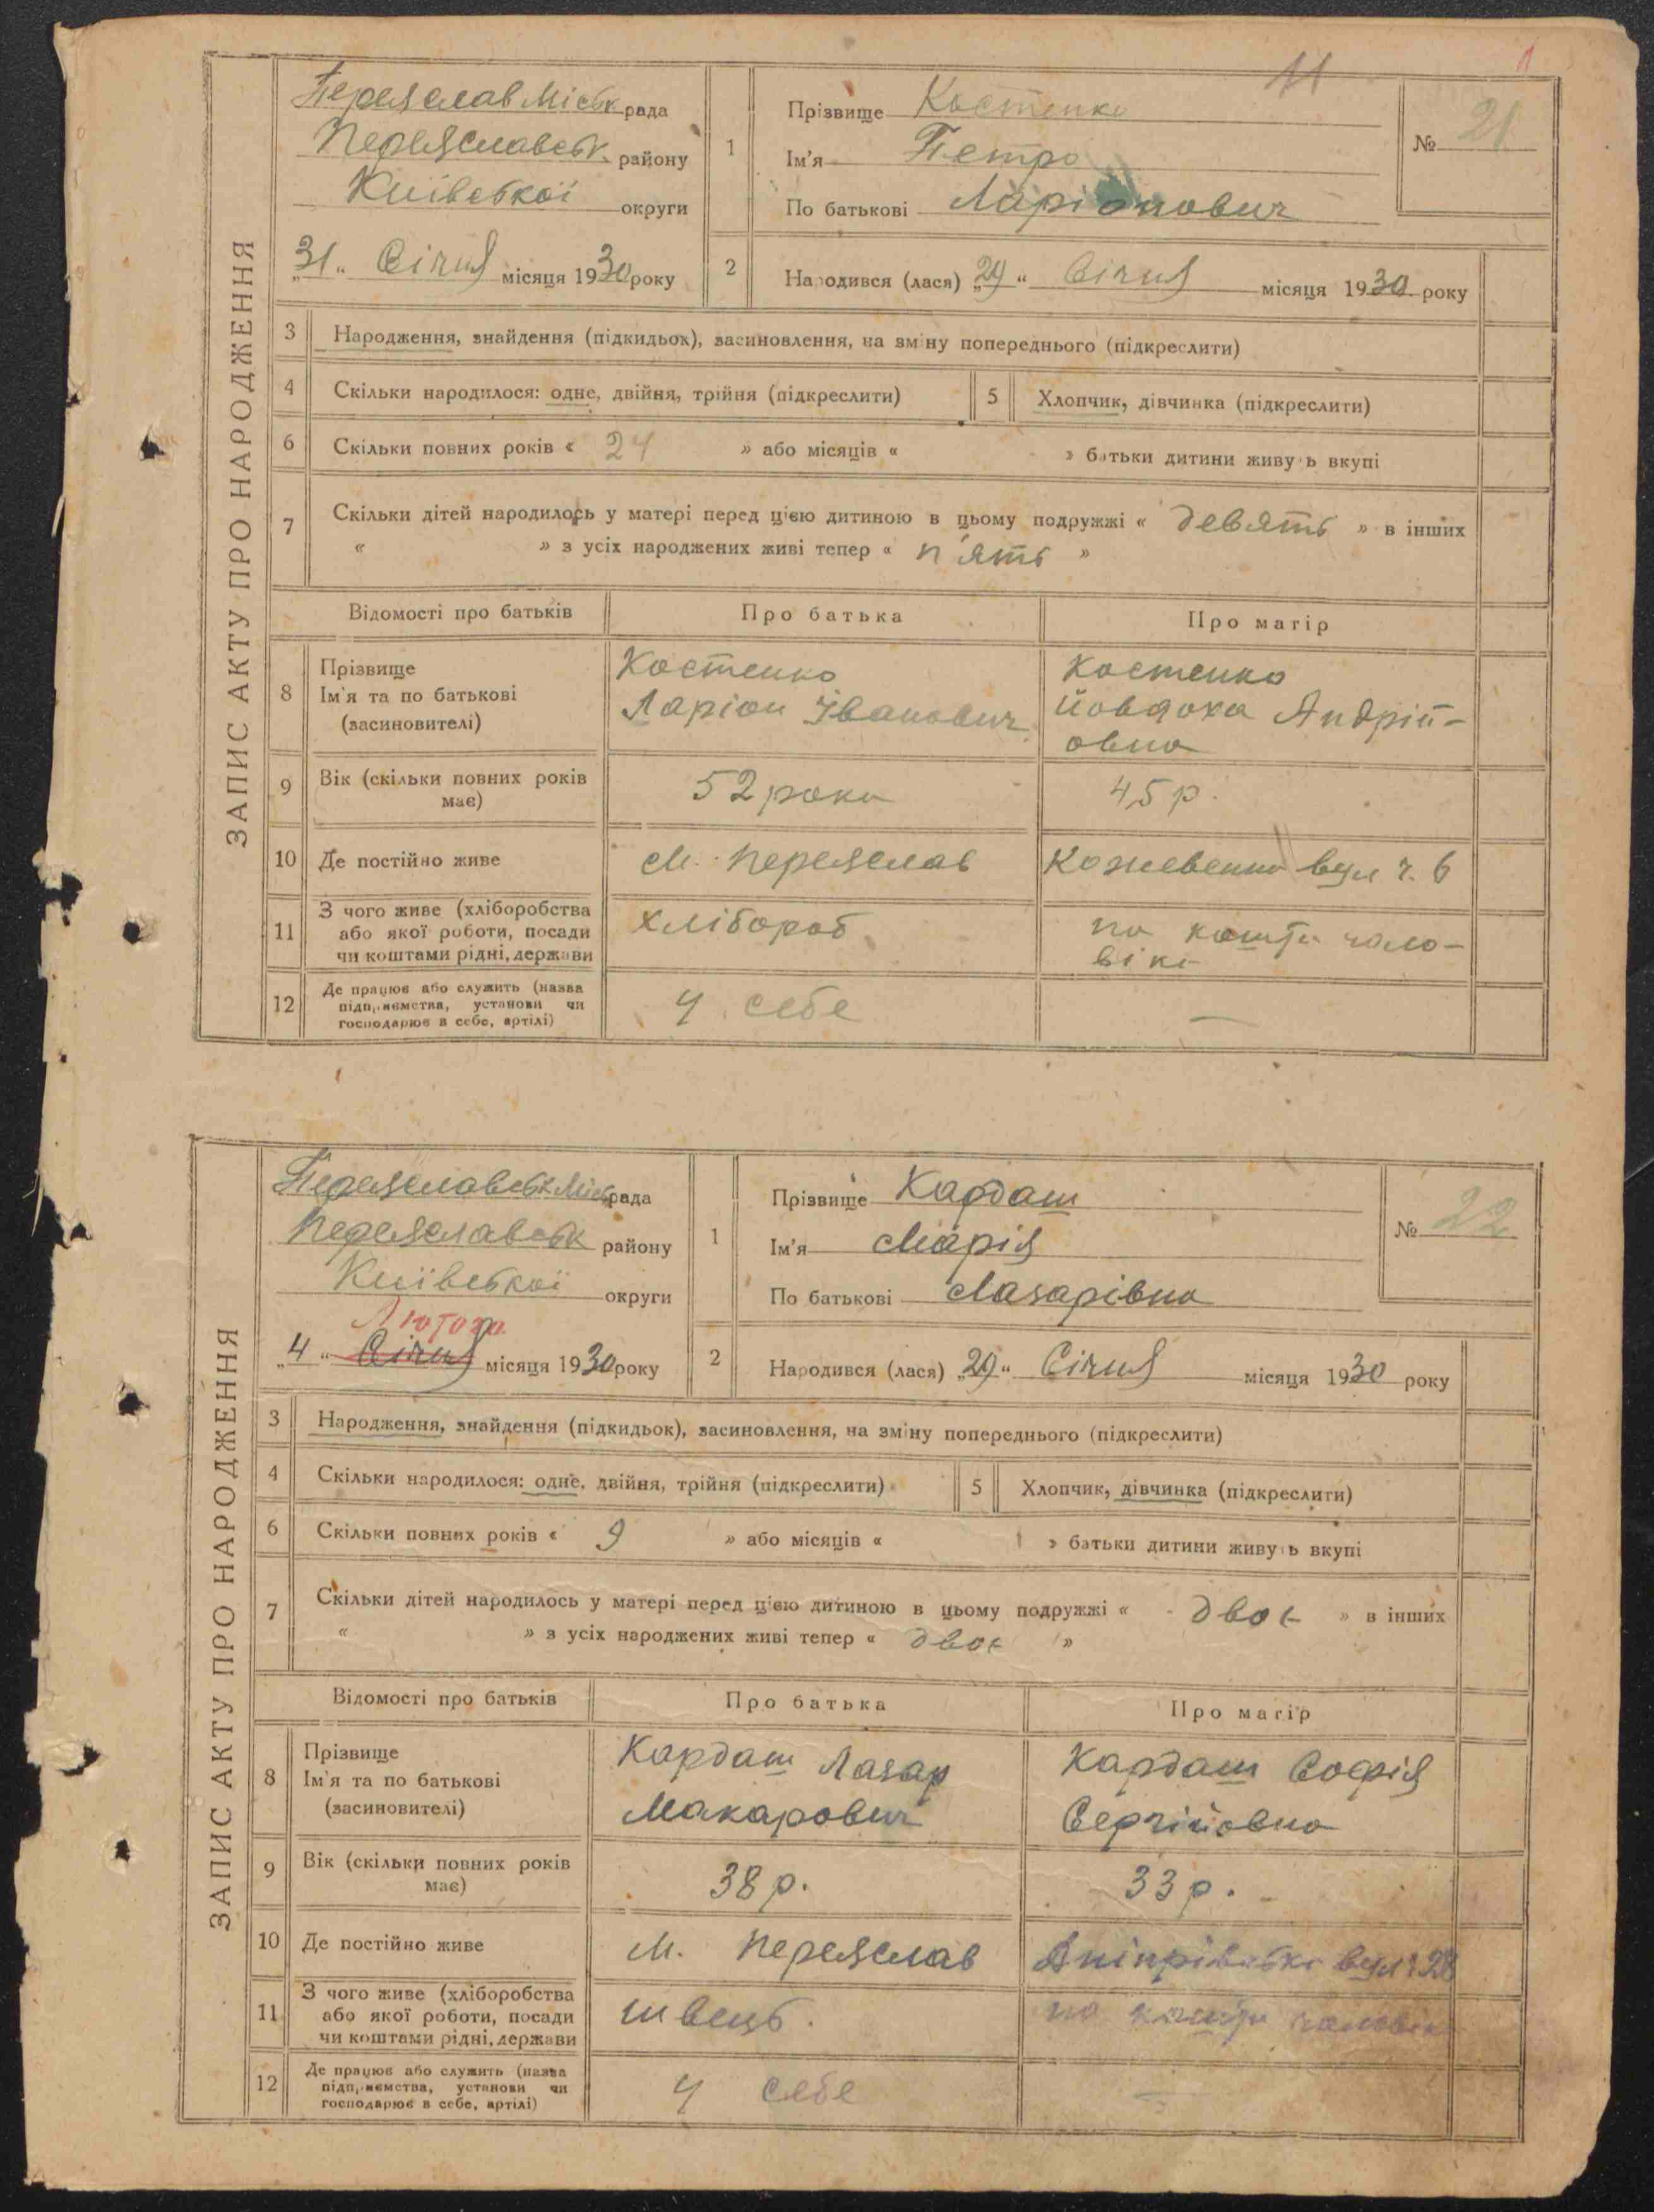 11
1
ЗАПИС АКТУ ПРО НАРОДЖЕННЯ
Переяслав Міськрада
Переяславськ району
Київської округи
31 Січня місяця 1930 року
1
Прізвище Костенко
Ім'я Петро
По батькові Ларіонович
№ 21
2
Народився (лася) „29“ Січня місяця 1930 року
3 Народження, знайдення (підкидьок), засиновлення, на зміну попереднього (підкреслити)
4 Скільки народилося: одне, двійня, трійня (підкреслити)
5 Хлопчик, дівчинка (підкреслити)
6 Скільки повних років « 24 » або місяців « » батьки дитини живуть вкупі
7 Скільки дітей народилось у матері перед цією дитиною в цьому подружжі « девять » в інших
« » з усіх народжених живі тепер « п'ять »
Відомості про батьків Про батька Про матір
8 Прізвище
Ім'я та по батькові
(засиновителі)
Костенко
Ларіон Іванович
Костенко
Йовдоха Андрій-
овна
9 Вік (скільки повних років
має)
52 роки
45 р.
10 Де постійно живе
м. Переяслав
Кожевенна вул ч. 6
11 З чого живе (хліборобства
або якої роботи, посади
чи коштами рідні, держави
хлібороб
на кошти чоло-
віка
12 Де працює або служить (назва
підприємства, установи чи
господарює в себе, артілі)
У себе
—
ЗАПИС АКТУ ПРО НАРОДЖЕННЯ
Переяславськ Міськрада
Переяславськ району
Київської округи
Лютого
„4“ Січня місяця 1930 року
1
Прізвище Кардаш
Ім'я Марія
По батькові Лазарівна
№ 22
2
Народився (лася) „29“ Січня місяця 1930 року
3 Народження, знайдення (підкидьок), засиновлення, на зміну попереднього (підкреслити)
4 Скільки народилося: одне, двійня, трійня (підкреслити)
5 Хлопчик, дівчинка (підкреслити)
6 Скільки повних років « 9 » або місяців « » батьки дитини живуть вкупі
7 Скільки дітей народилось у матері перед цією дитиною в цьому подружжі « двоє » в інших
« » з усіх народжених живі тепер « двоє »
Відомості про батьків Про батька Про матір
8 Прізвище
Ім'я та по батькові
(засиновителі)
Кардаш Лазар
Макарович
Кардаш Софія
Сергійовна
9 Вік (скільки повних років
має)
38 р.
33 р.
10 Де постійно живе
м. Переяслав
вул ч 28
11 З чого живе (хліборобства
або якої роботи, посади
чи коштами рідні, держави
швець.
на кошти чоловіка
12 Де працює або служить (назва
підприємства, установи чи
господарює в себе, артілі)
У себе
—